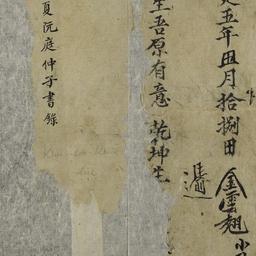 五年丑月拾捌日
金雲翹小
生吾原有意乾坤生
夏阮庭仲子書錄